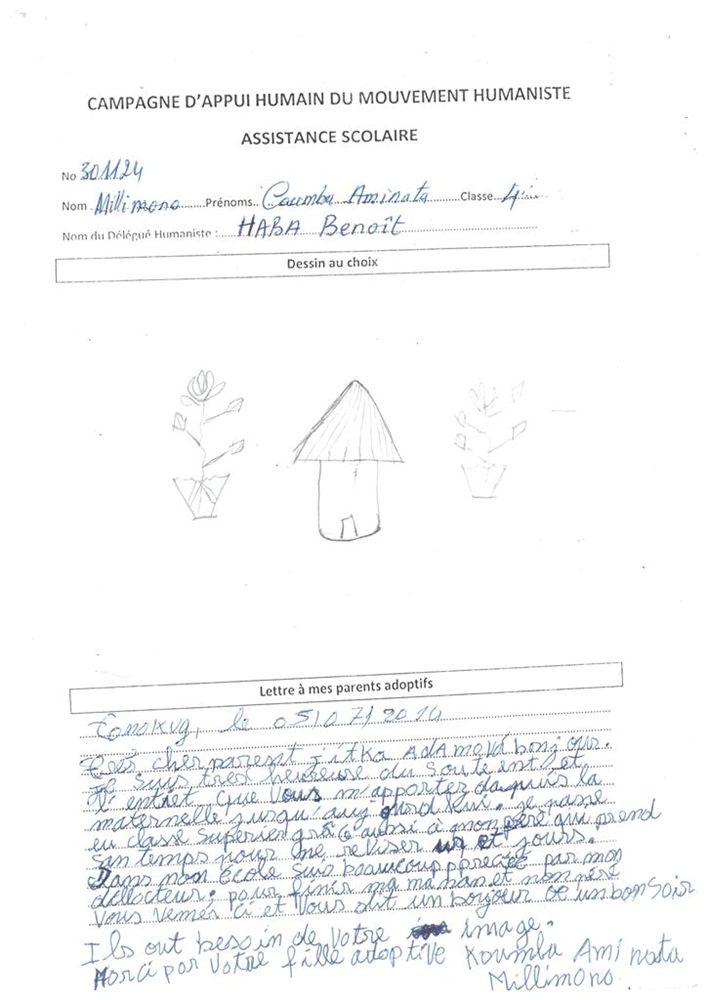 CAMPAGNE D'APPUI HUMAIN DU MOUVEMENT HUMANISTE
ASSISTANCE SCOLAIRE
No 301124
Nom Millimono Prénoms Coumba Aminata Classe 4
Nom du Délégué Humaniste : HABA Benoît
Dessin au choix
Lettre à mes parents adoptifs
le 05/07/2014
cher parent jitka AdAmová bonjour.
Je suys tres heureuse du Soute int et
entret que Vous m'apportez daquis la
maternelle jusqu' Je passe
en classe Superier aussi à mon père qui prend
San temps pour me reviser et jours.
Dans mon école suis beaucoup par mon
dellecteur; pour finir ma maman et mon père
Vous Ci et Vous dit un bonjour un bon Soir
Ils out besoin de Votre image.
por Votre fille adoptive Koumba Aminata
Millimono